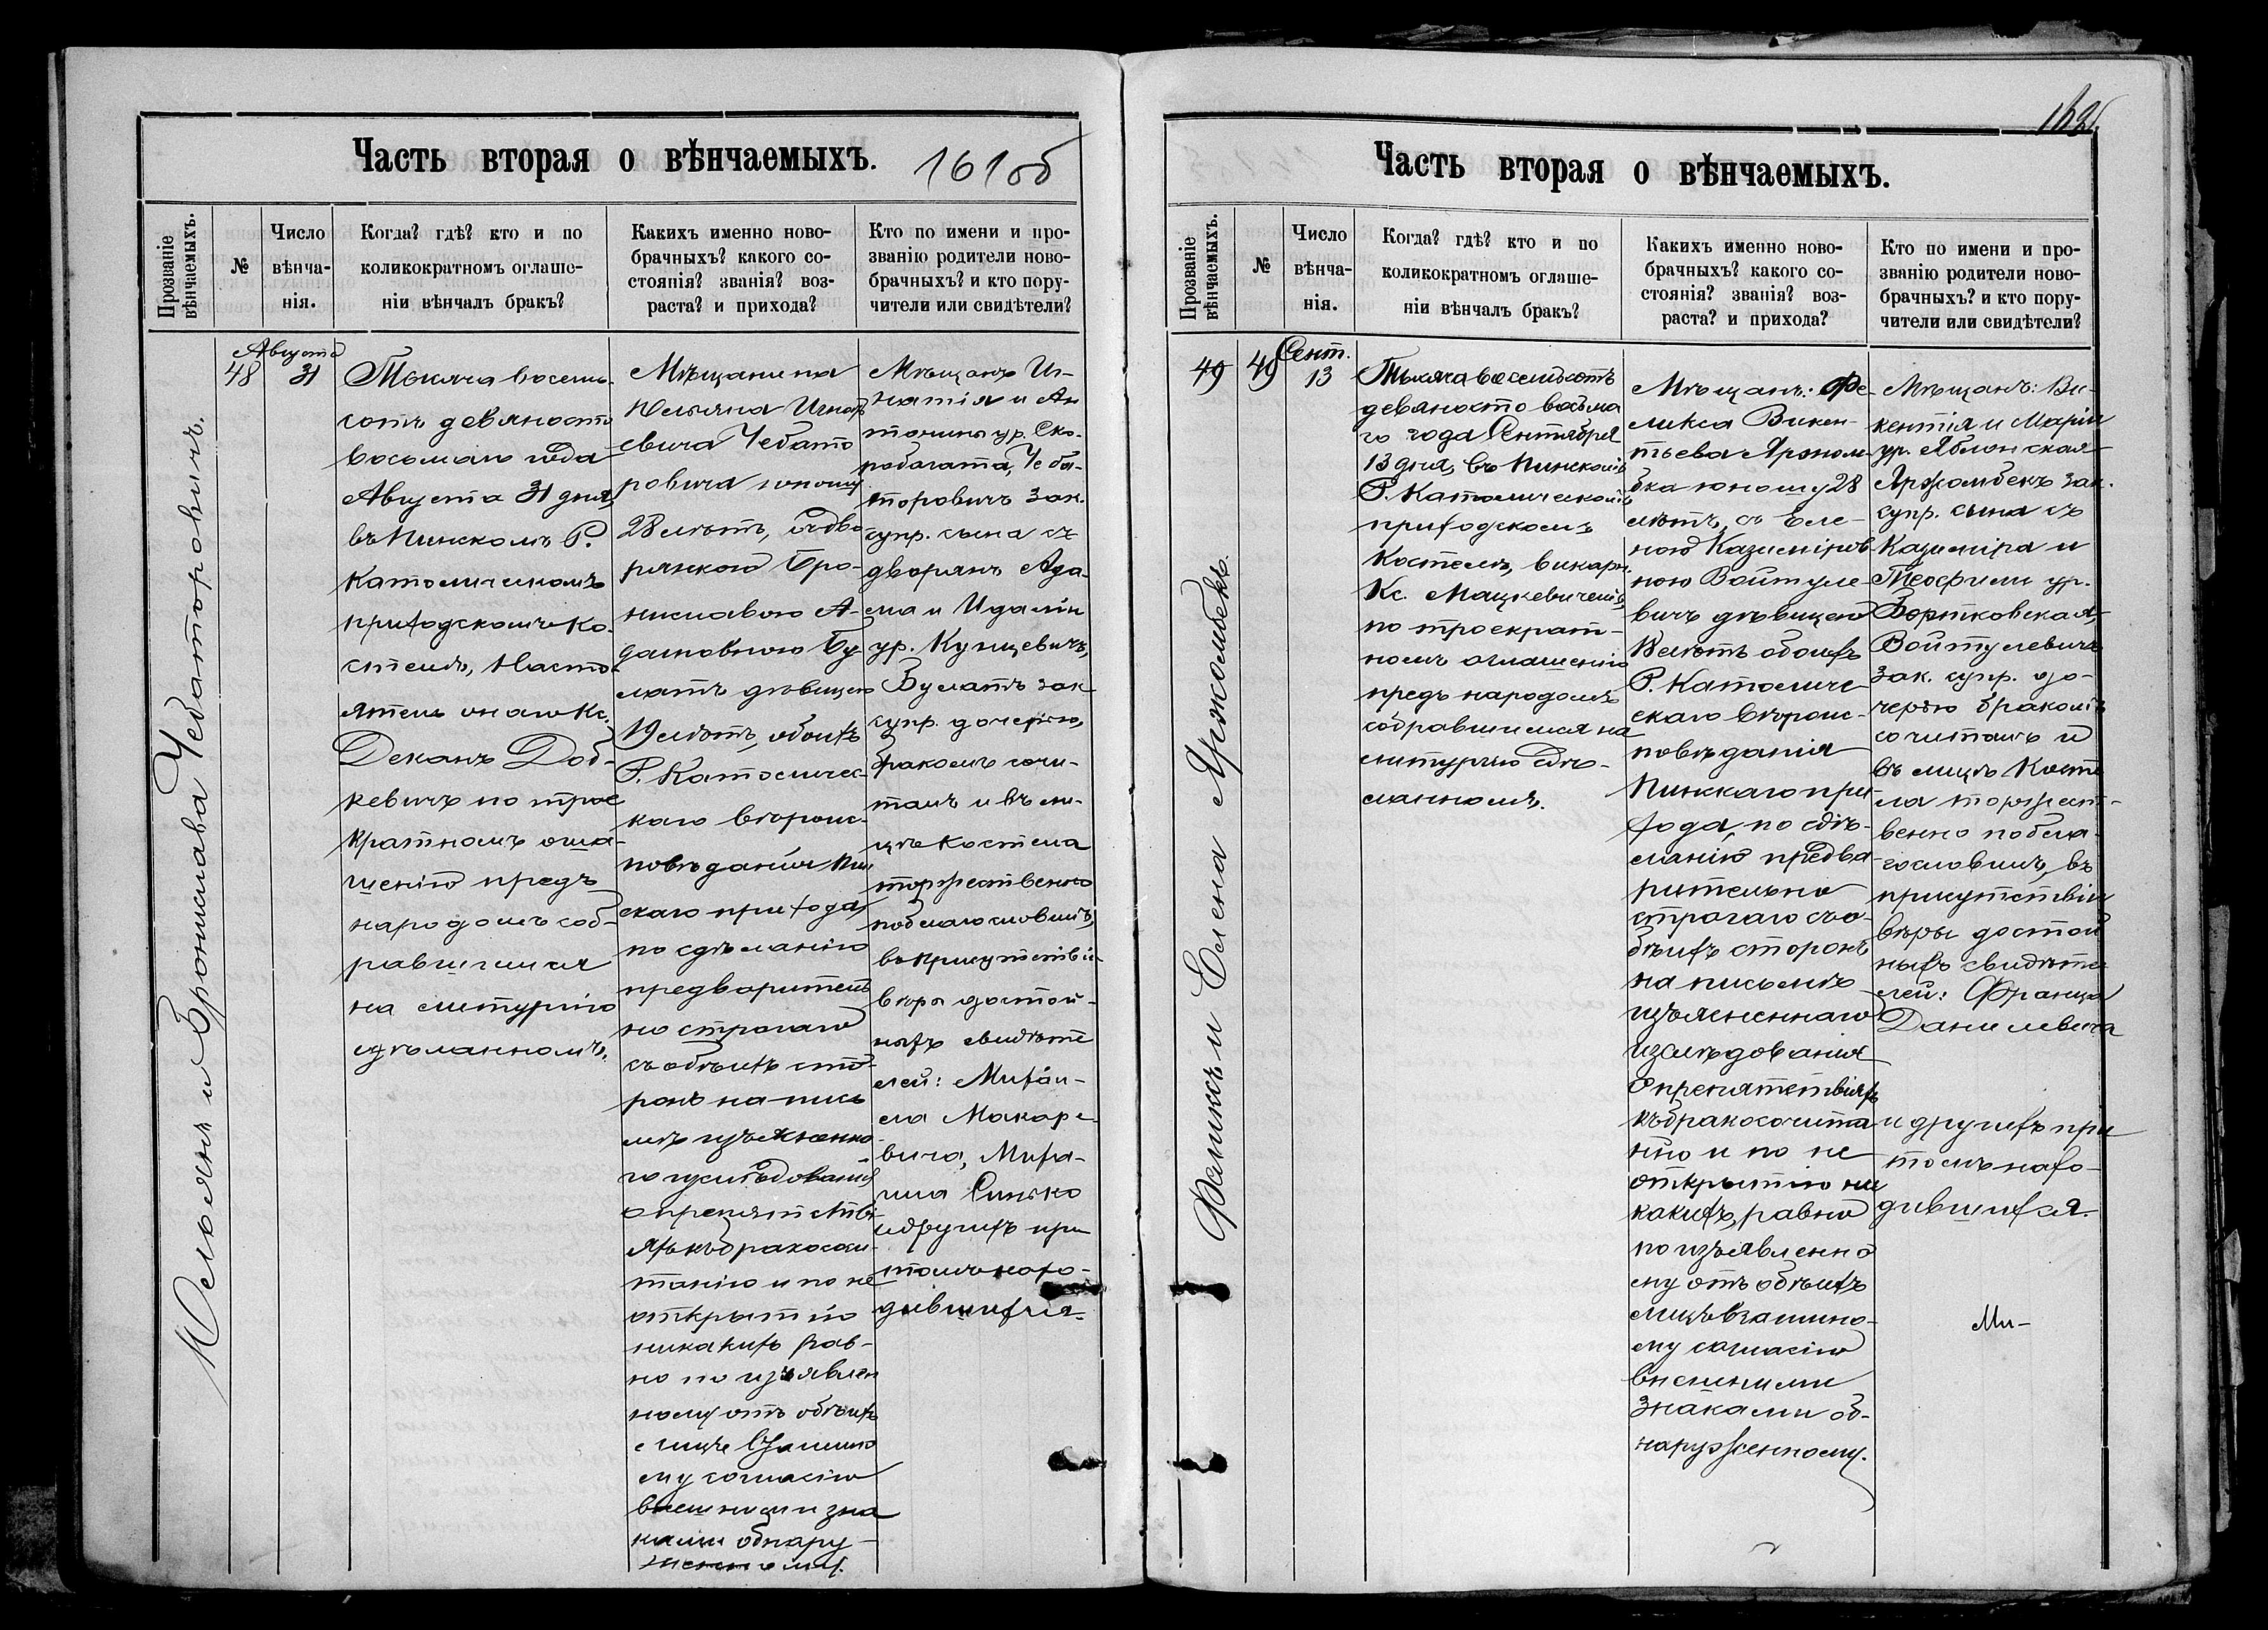 Часть вторая о вѣнчаемыхъ. 161об
Прозваніе вѣнчаемыхъ.
№
Число вѣнча-
нія.
Когда? гдѣ? кто и по
коликократномъ оглаше-
ніи вѣнчалъ бракъ?
Какихъ именно ново-
брачныхъ? какого со-
стоянія? званія? воз-
раста? и прихода?
Кто по имени и про-
званію родители ново-
брачныхъ? и кто пору-
чители или свидѣтели?
Юльянъ и Бронислава Чебаторовичъ.
48
Августа
31
Тысяча восемь-
сотъ девяносто
восьмаго года
Августа 31 дня,
въ Пинскомъ Р.
Католическомъ
приходскомъ Ко-
стелѣ, Насто-
ятель онаго Кс.
Деканъ
кевичъ по трое
кратномъ огла-
шенію предъ
народомъ соб-
равшимся
на литургію
сдѣланномъ.
Мѣщанина
Юльяна Игнать
евича Чебато
ровича юношу
28 лѣтъ, съ дво
рянкою Бро-
ниславою А-
дамовною Бу
латъ дѣвицею
19 лѣтъ, обоихъ
Р. Католичес-
каго вѣроис-
повѣданія Пин
скаго прихода,
по сдѣланію
предваритель
но строгаго
съ обѣихъ сто-
ронъ на пись
мѣ изъясненна-
го изслѣдованія
о препятстві-
яхъ къ бракосоче-
танію и по не
открытію
никакихъ рав-
но по изъявлен
ному отъ обѣихъ
лицъ взаимно
му согласію
внешними зна
ками обнару-
женному.
Мѣщанъ Иг-
натія и Ан
тонины ур. Ско-
робогата, Чеба-
торовичъ зак.
супр. сына съ
дворянъ Ада-
ма и Идаліи
ур. Кунцевичъ,
Булатъ зак
супр. дочерью,
бракомъ соче-
талъ и въ ли-
цѣ костела
торжественно
поблагословилъ,
въ присутствіи
вѣры достой-
ныхъ свидѣте
лей: Михаи-
ла Макаре-
вича,
Синько
и другихъ при
томъ нахо-
дившихся.
162
Часть вторая о вѣнчаемыхъ.
Прозваніе вѣнчаемыхъ.
№
Число вѣнча-
нія.
Когда? гдѣ? кто и по
коликократномъ оглаше-
ніи вѣнчалъ бракъ?
Какихъ именно ново-
брачныхъ? какого со-
стоянія? званія? воз-
раста? и прихода?
Кто по имени и про-
званію родители ново-
брачныхъ? и кто пору-
чители или свидѣтели?
Феликсъ и Елена Яржомбекъ.
49
49
Сент.
13
Тысяча восемьсотъ
девяносто восьма
го года Сентября
13 дня, въ Пинскомъ
Р. Католическомъ
приходскомъ
Костелѣ, викарн.
Кс. Мацкевичемъ,
по троекрат-
номъ оглашенію
предъ народомъ
собравшимся на
литургію сдѣ-
ланномъ.
Мѣщанъ: Фе-
ликса Викен-
тьева Яржом-
бка юношу 28
лѣтъ, съ Еле-
ною Казиміров
ною Войтуле-
вичъ дѣвицею
лѣтъ обоихъ
Р. Католиче
скаго вѣроис-
повѣданія
Пинскаго при
хода, по сдѣ-
ланію предва
рительно
строгаго съ о-
бѣихъ сторонъ
на письмѣ
изъясненнаго
изслѣдованія
о препятствіяхъ
къ бракосочета
нію и по не
открытію ни
какихъ, равно
по изъявленно
му отъ обѣихъ
лицъ взаимно-
му согласію
внешними
знаками об-
наруженному.
Мѣщанъ: Ви-
кентія и Маріи
ур. Яблонская
Яржомбекъ зак.
супр. сына съ
Казиміра и
Теофили ур.
Бортковская,
Войтулевичъ
зак. супр. до-
черью бракомъ
сочеталъ и
въ лицѣ Косте
ла торжест-
венно побла-
гословилъ, въ
присутствіи
вѣры достой
ныхъ свидѣте
лей: Франца
Данилевича
и другихъ при
томъ нахо-
дившихся.
Ми-